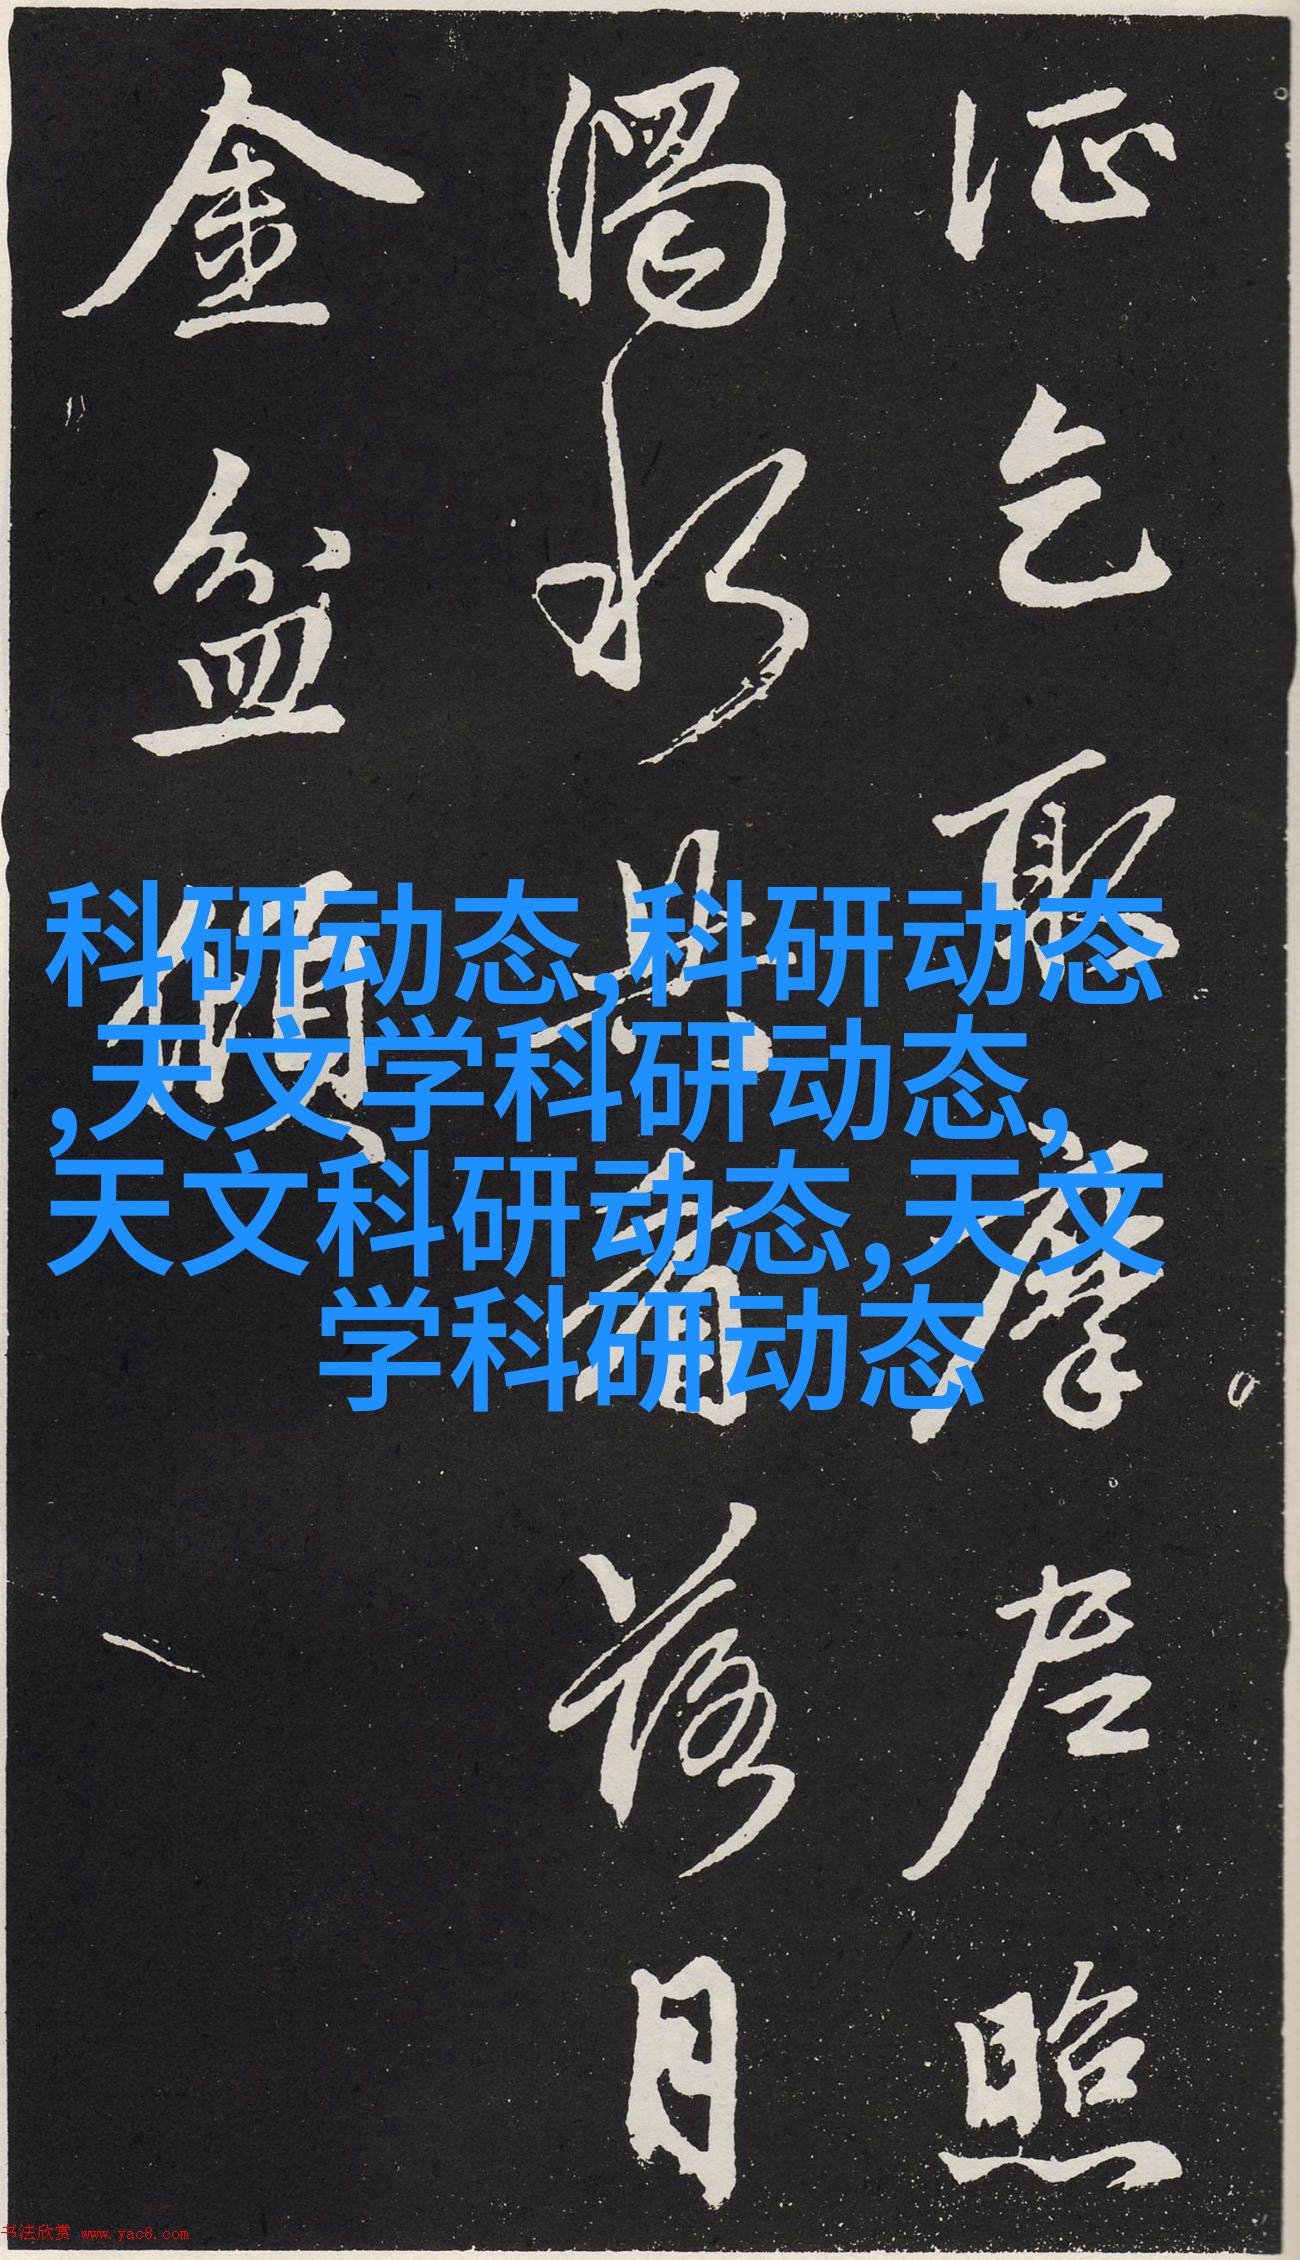 乞聊摩照
濁水共看落月
金盆傾
科研动态,科研动态
,天文学科研动态,
天文科研动态,天文
学科研动态
书法欣赏 www.yac8.com